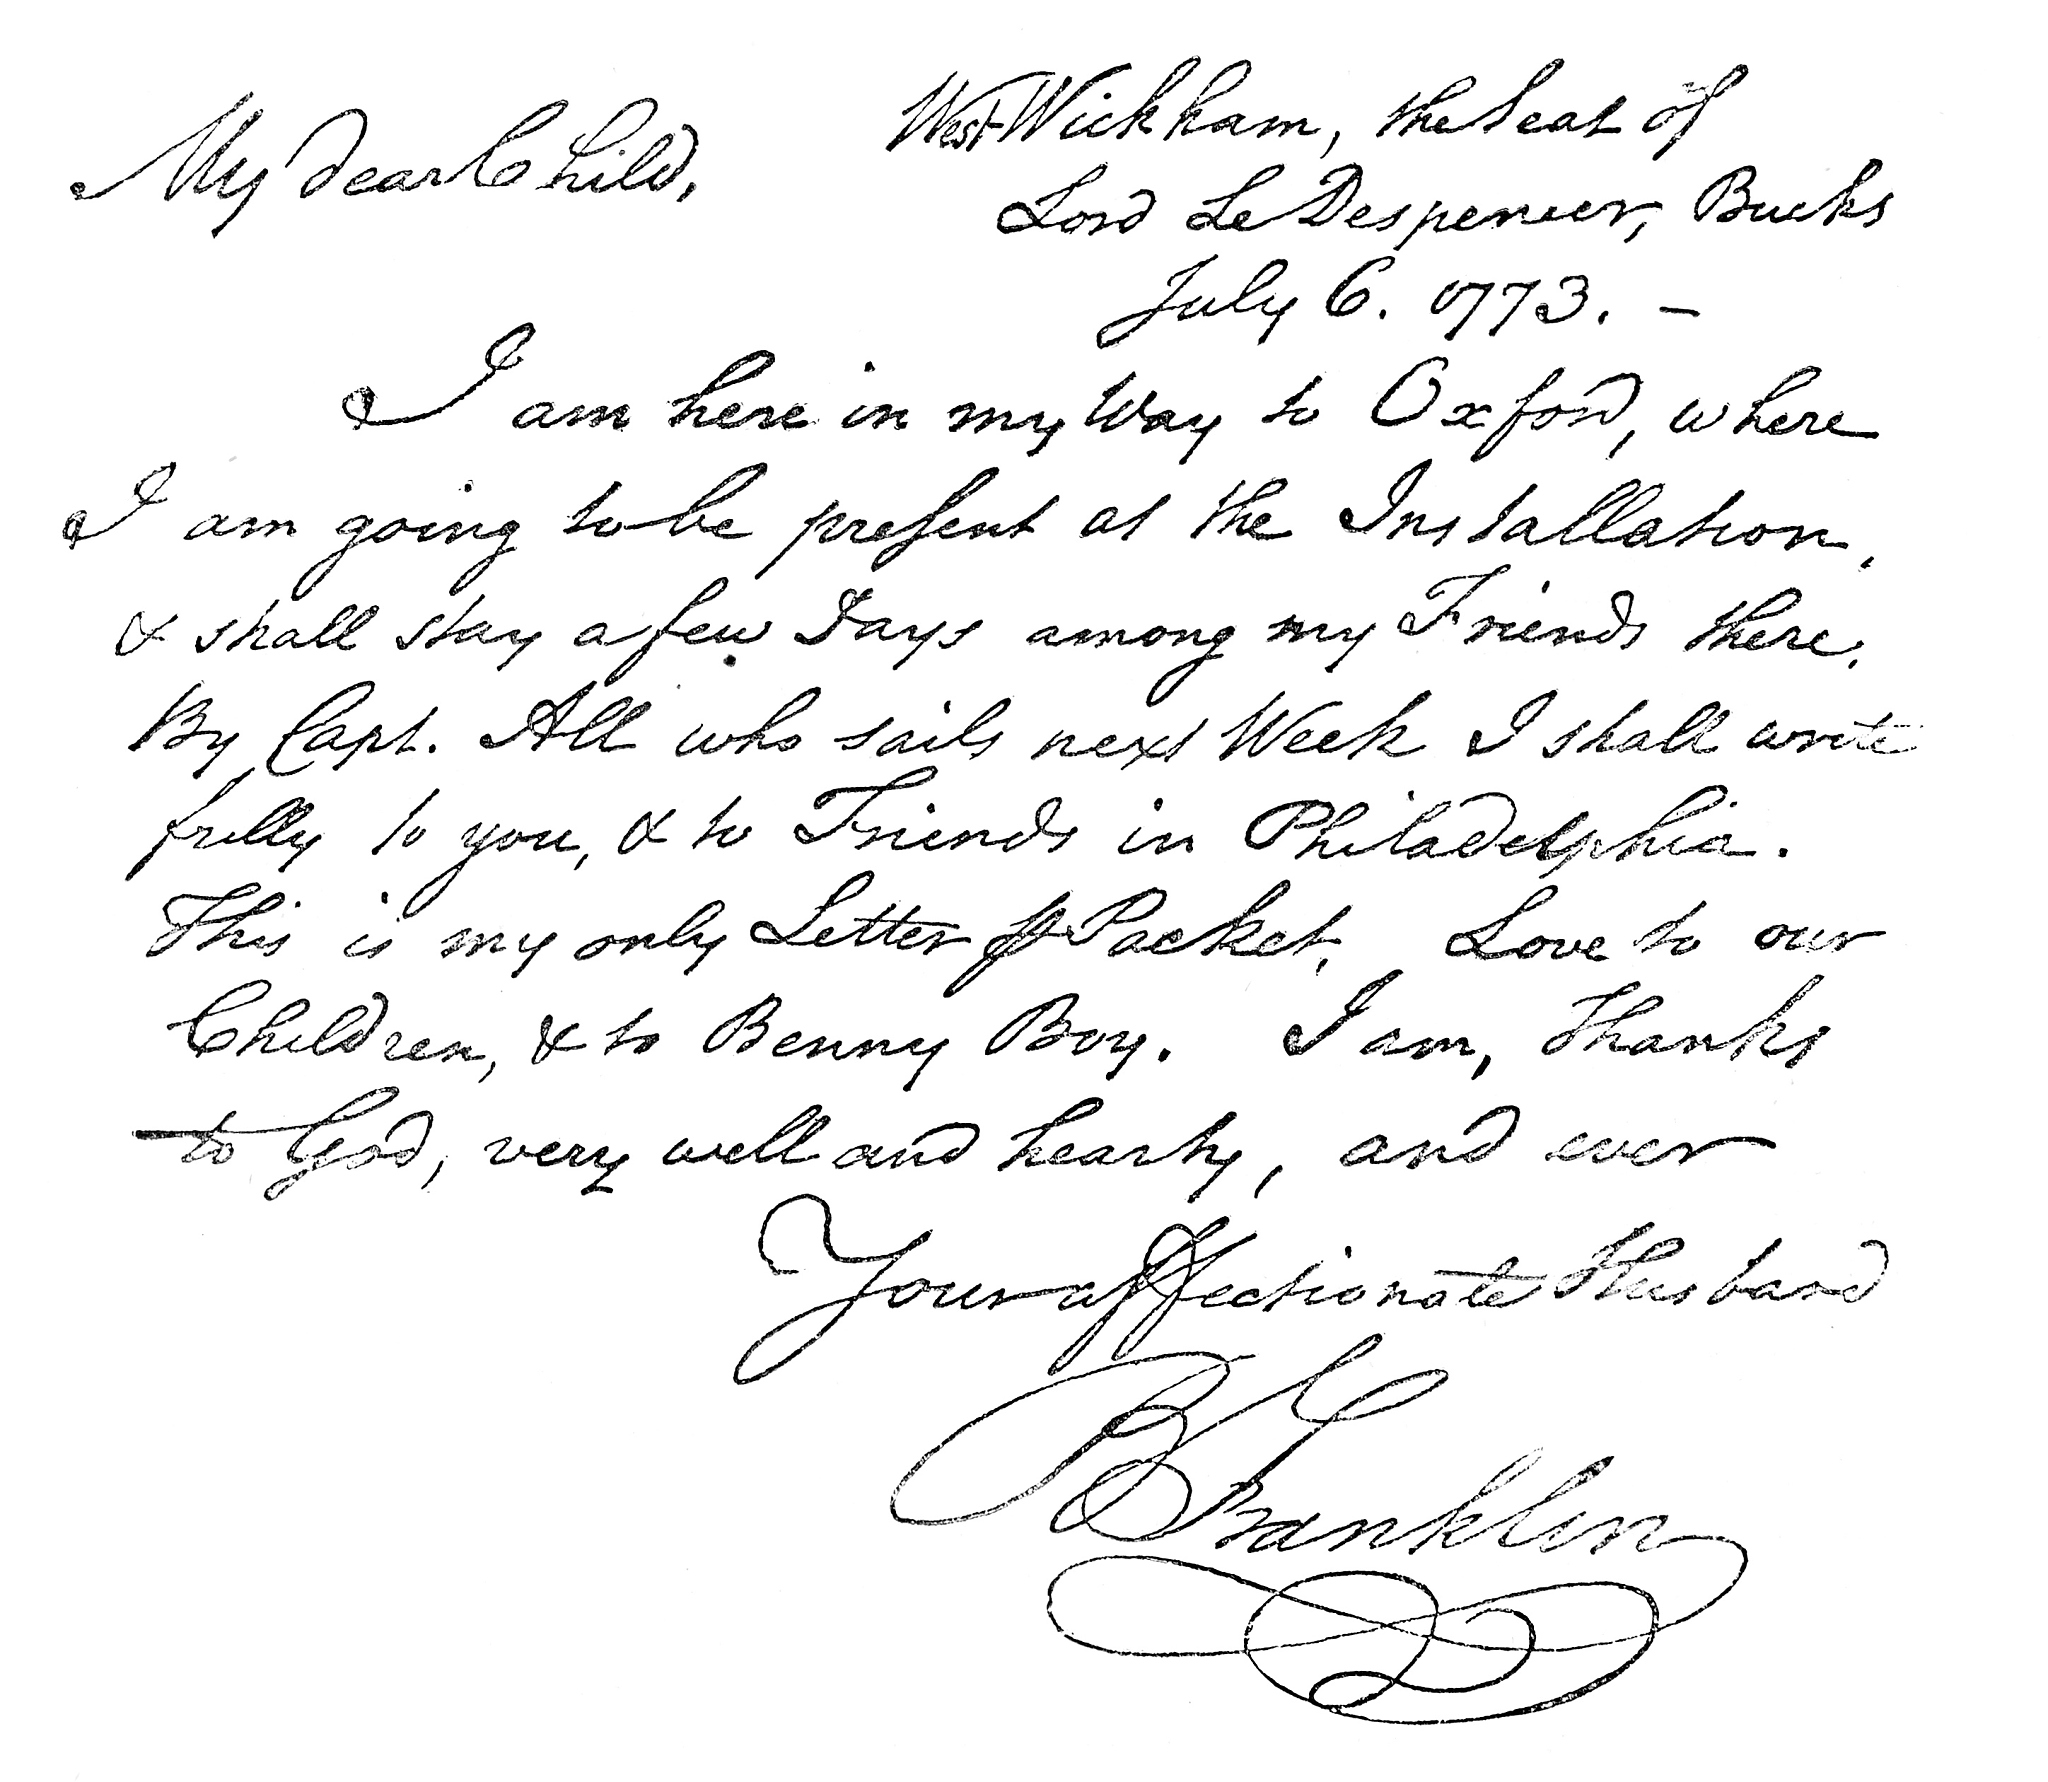 West Wickham, the Seat of
My dear Child,
Lord Le Despencer, Bucks
July 6. 1773. –
I am here in my Way to Oxford, where
I am going to be preſent at the Installation,
& shall stay a few Days among my Friends there.
By Capt. All who sails next Week I shall write
fully to you, & to Friends in Philadelphia.
This is my only Letter ⅌ Packet. Love to our
Children, & to Benny Boy. I am, Thanks
to God, very well and hearty, and ever
Your affectionate Husband
B Franklin